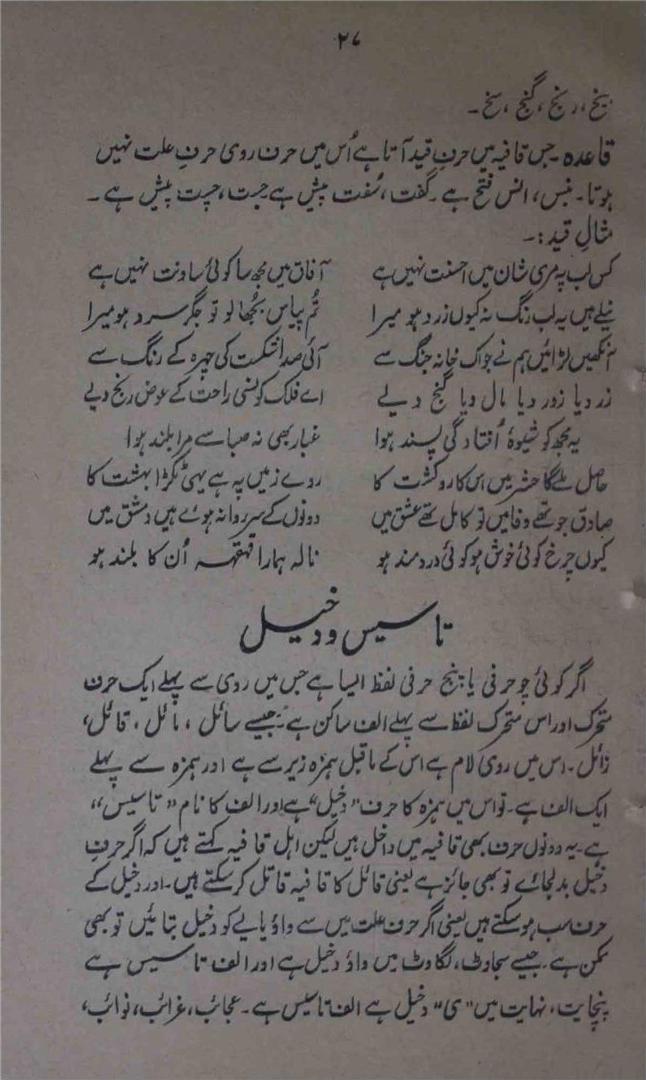 ۲۷
پنج، رنج، گنج، سنج۔
قاعدہ۔ جس قافیہ میں حرفِ قید آتا ہے اُس میں حرف روی حرفِ علت نہیں
ہوتا۔ ہنس، انس فتح ہے۔ گفت، سُفت پیش ہے جست، چست پیش ہے۔
مثالِ قید:۔
کس لب پہ مری شان میں احسنت نہیں ہے آفاق میں مجھ سا کوئی ساونت نہیں ہے
نیلے ہیں یہ لب رنگ نہ کیوں زرد ہو میرا تُم پیاس بجھا لو تو جگر سرد ہو میرا
آنکھیں لڑائیں ہم نے جو اک خانہ جنگ سے آئی صدا شکست کی چہرہ کے رنگ سے
زر دیا زور دیا مال دیا گنج دیے اے فلک کونسی راحت کے عوض رنج دیے
یہ مجھ کو شیوۂ اُفتادگی پسند ہوا غبار بھی نہ صبا سے مرا بلند ہوا
حاصل ملے گا حشر میں اس کار و کشت کا روے زمیں پہ ہے یہی ٹکڑا بہشت کا
صادق جو تھے وفا میں تو کامل تھے عشق میں دونوں کے سر روانہ ہوے ہیں دمشق میں
کیوں چرخ کوئی خوش ہو کوئی دردمند ہو نالہ ہمارا قہقہہ اُن کا بلند ہو
تاسیس و دخیل
اگر کوئی چو حرفی یا پنج حرفی لفظ ایسا ہے جس میں روی سے پہلے ایک حرف
متحرک اور اس متحرک لفظ سے پہلے الف ساکن ہے۔ جیسے سائل، مائل، قائل،
زائل۔ اس میں روی لام ہے اس کے ماقبل ہمزہ زیر سے ہے اور ہمزہ سے پہلے
ایک الف ہے۔ تو اس میں ہمزہ کا حرف "دخیل" ہے اور الف کا نام "تاسیس"
ہے۔ یہ دونوں حرف بھی قافیہ میں داخل ہیں لیکن اہل قافیہ کہتے ہیں کہ اگر حرفِ
دخیل بدل جاے تو بھی جائز ہے یعنی قائل کا قافیہ قاتل کر سکتے ہیں۔ اور دخیل کے
حرف سب ہو سکتے ہیں یعنی اگر حرف علت میں سے واؤ یا یے کو دخیل بنائیں تو بھی
ممکن ہے۔ جیسے سجاوٹ، لگاوٹ میں واؤ دخیل ہے اور الف تاسیس ہے
پنچایت، نہایت میں "ی" دخیل ہے الف تاسیس ہے۔ عجائب، غرائب، نوائب،